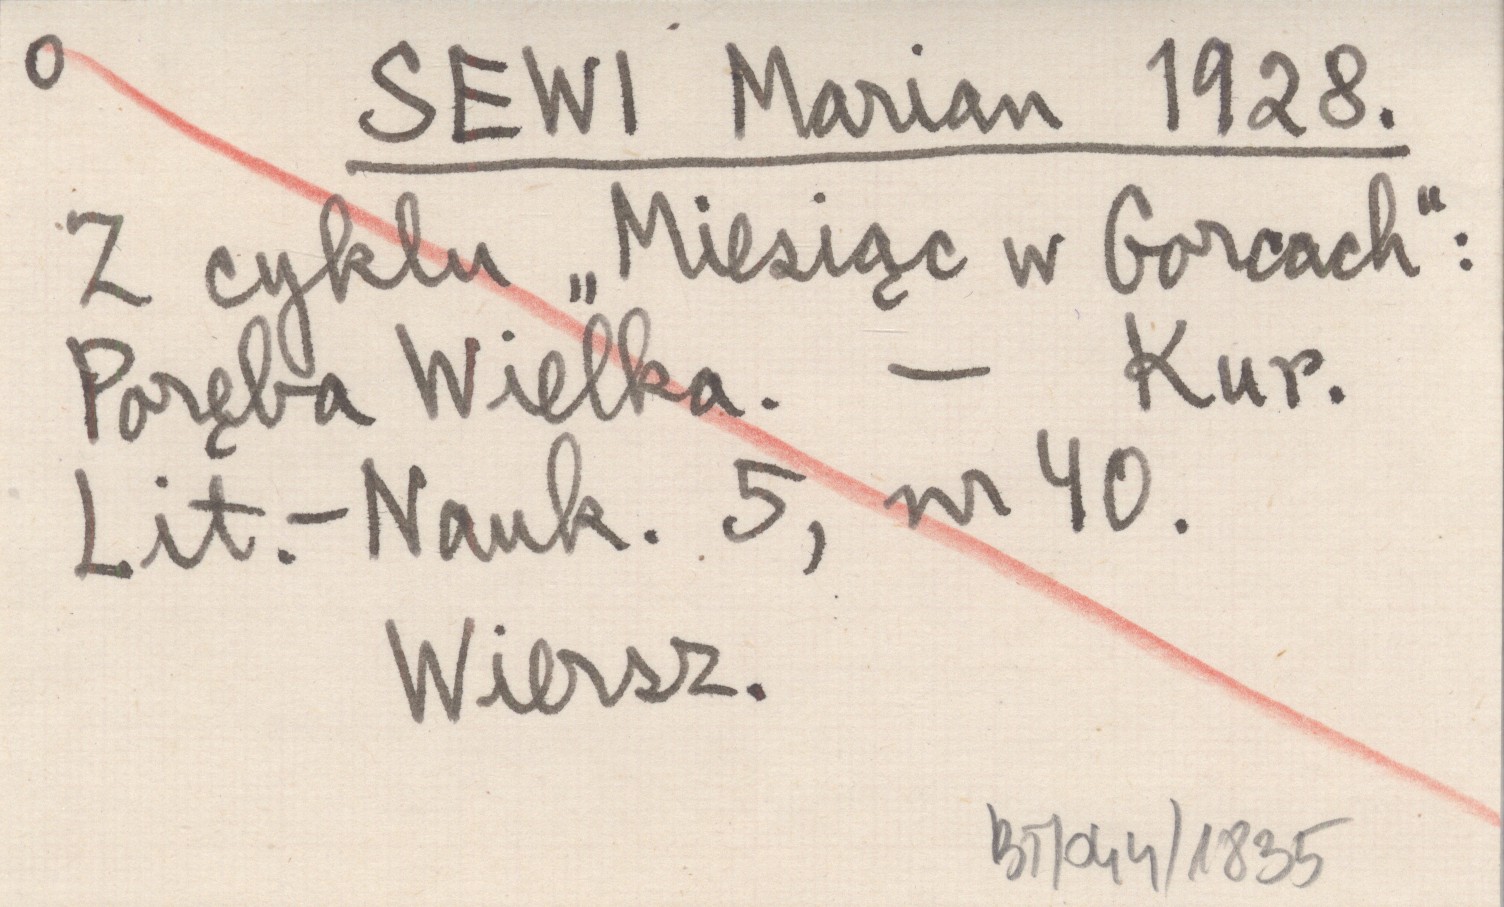 O SEWI Marian 1928.
Z cyklu „Miesiąc w Gorcach":
Poręba Wielka. — Kur.
Lit.-Nauk. 5, nr 40.
Wiersz.
BT/044/1835